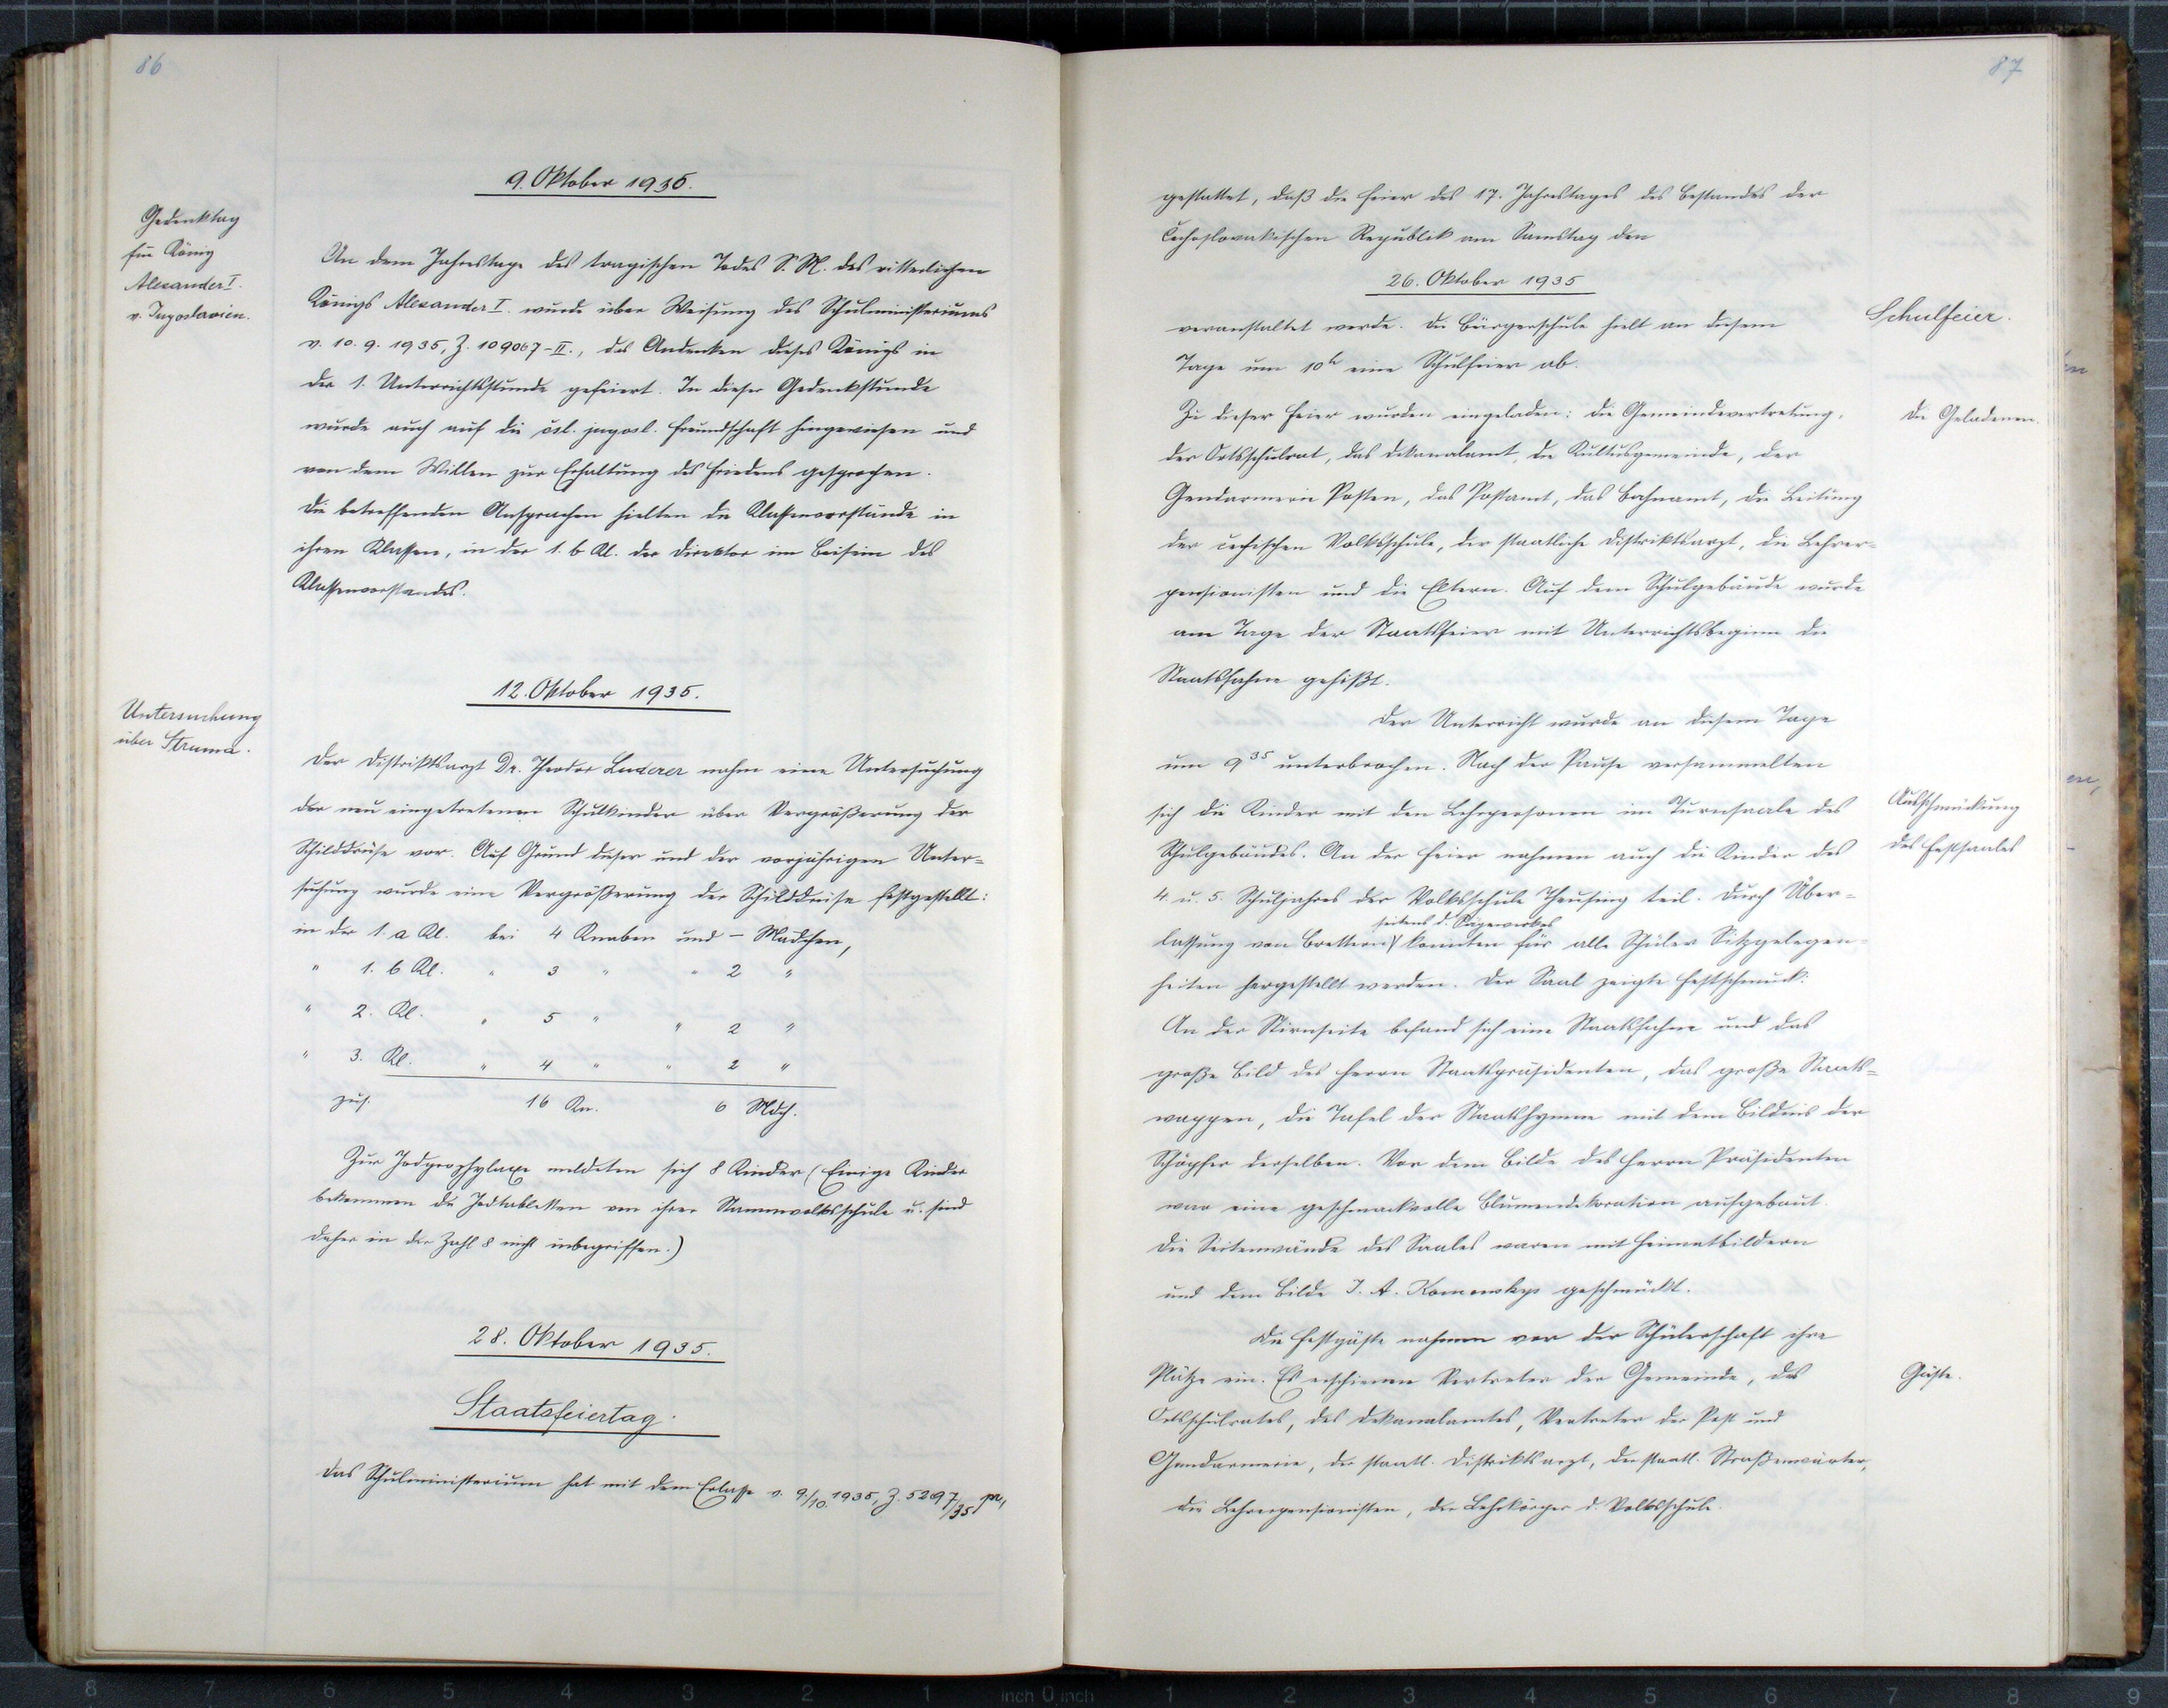 86
9. Oktober 1935.
Gedenktag
für König
Alexander I.
v. Jugoslavien.
An dem Jahrestage des tragischen Todes S. M. des ritterlichen
Königs Alexander I. wurde über Weisung des Schulministeriums
v. 10. 9. 1935, Z. 109067-II., das Andenken dieses Königs in
der 1. Unterrichtsstunde gefeiert. In dieser Gedenkstunde
wurde auch auf die čsl. jugosl. Freundschaft hingewiesen und
von dem Willen zur Erhaltung des Friedens gesprochen.
Die betreffenden Ansprachen hielten die Klassenvorstände in
ihren Klassen, in der 1. b Kl. der Direktor im Beisein des
Klassenvorstandes.
12. Oktober 1935.
Untersuchung
über Struma.
Der Distriktsarzt Dr. Theodor Luderer nahm eine Untersuchung
der neu eingetretenen Schulkinder über Vergrößerung der
Schilddrüse vor. Auf Grund dieser und der vorjährigen Unter-
suchung wurde eine Vergrößerung der Schilddrüse festgestellt:
in der 1. a Kl. bei 4 Knaben und - Mädchen,
" 1. b Kl. " 3 " " 2 "
" 2. Kl. " 5 " " 2 "
" 3. Kl. " 4 " " 2 "
zus. 16 Kn. 6 Mdch.
Zur Jodprophylaxe meldeten sich 8 Kinder (Einige Kinder
bekommen die Jodtabletten von ihrer Stammvolksschule u. sind
daher in der Zahl 8 nicht inbegriffen.)
28. Oktober 1935.
Staatsfeiertag.
Das Schulministerium hat mit dem Erlasse v. 9./10. 1935, Z. 5297/35 pr,
87
gestattet, daß die Feier des 17. Jahrestages des Bestandes der
Čechoslovakischen Republik am Samstag den
26. Oktober 1935
Schulfeier.
veranstaltet werde. Die Bürgerschule hielt an diesem
Tage um 10h eine Schulfeier ab.
Zu dieser Feier wurden eingeladen: die Gemeindevertretung,
Die Geladenen.
der Ortsschulrat, das Dekanalamt, die Kultusgemeinde, der
Gendarmerie Posten, das Postamt, das Bahnamt, die Leitung
der čechischen Volksschule, der staatliche Distriktsarzt, die Lehrer-
pensionisten und die Eltern. Auf dem Schulgebäude wurde
am Tage der Staatsfeier mit Unterrichtsbeginn die
Staatsfahne gehißt.
Der Unterricht wurde an diesem Tage
um 9 35 unterbrochen. Nach der Pause versammelten
sich die Kinder mit den Lehrpersonen im Turnsaale des
Ausschmückung
des Festsaales
Schulgebäudes. An der Feier nahmen auch die Kinder des
4. u. 5. Schuljahres der Volksschule Theusing teil. Durch Über-
seitens d. Sägewerkes
lassung von Brettern konnten für alle Schüler Sitzgelegen-
heiten hergestellt werden. Der Saal zeigte Festschmuck:
An der Stirnseite befand sich eine Staatsfahne und das
große Bild des Herrn Staatspräsidenten, das große Staats-
wappen, die Tafel der Staatshymne mit dem Bildnis der
Schöpfer derselben. Vor dem Bilde des Herrn Präsidenten
war eine geschmackvolle Blumendekoration aufgebaut.
Die Seitenwände des Saales waren mit Heimatbildern
und dem Bilde J. A. Komenskys geschmückt.
Die Festgäste nahmen vor der Schülerschaft ihre
Plätze ein. Es erschienen Vertreter der Gemeinde, des
Gäste.
Ortsschulrates, des Dekanalamtes, Vertreter der Post und
Gendarmerie, der staatl. Distriktsarzt, der staatl. Straßenwärter,
die Lehrerpensionisten, der Lehrkörper d. Volksschule.
8 7 6 5 4 3 2 1 inch 0 inch 1 2 3 4 5 6 7 8 9